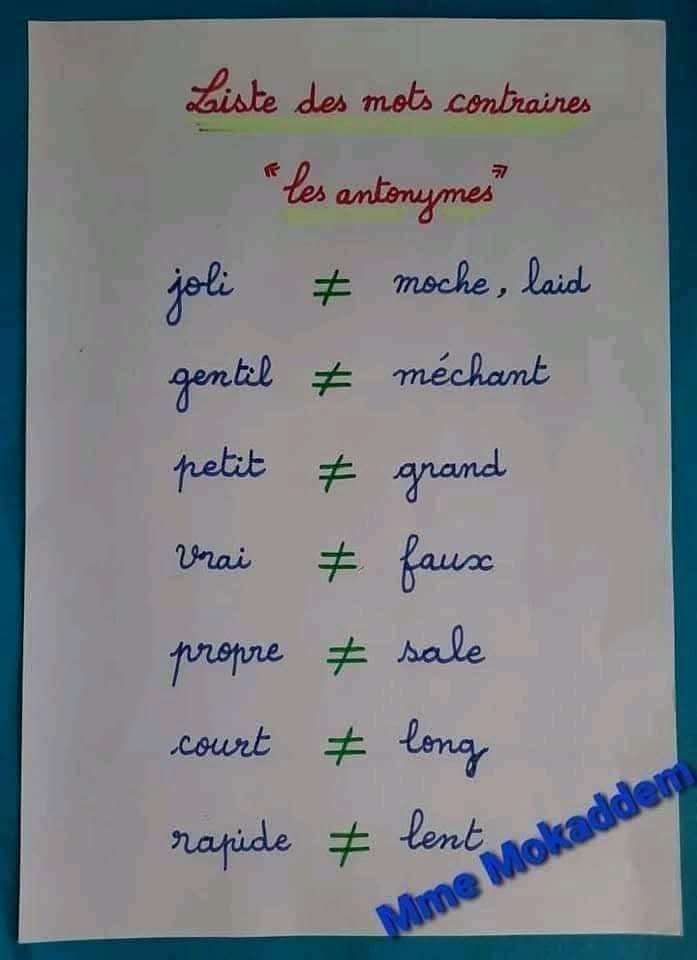 Liste des mots contraires
"les antonymes"
joli ≠ moche, laid
gentil ≠ méchant
petit ≠ grand
vrai ≠ faux
propre ≠ sale
court ≠ long
rapide ≠ lent
Mme Mokaddem